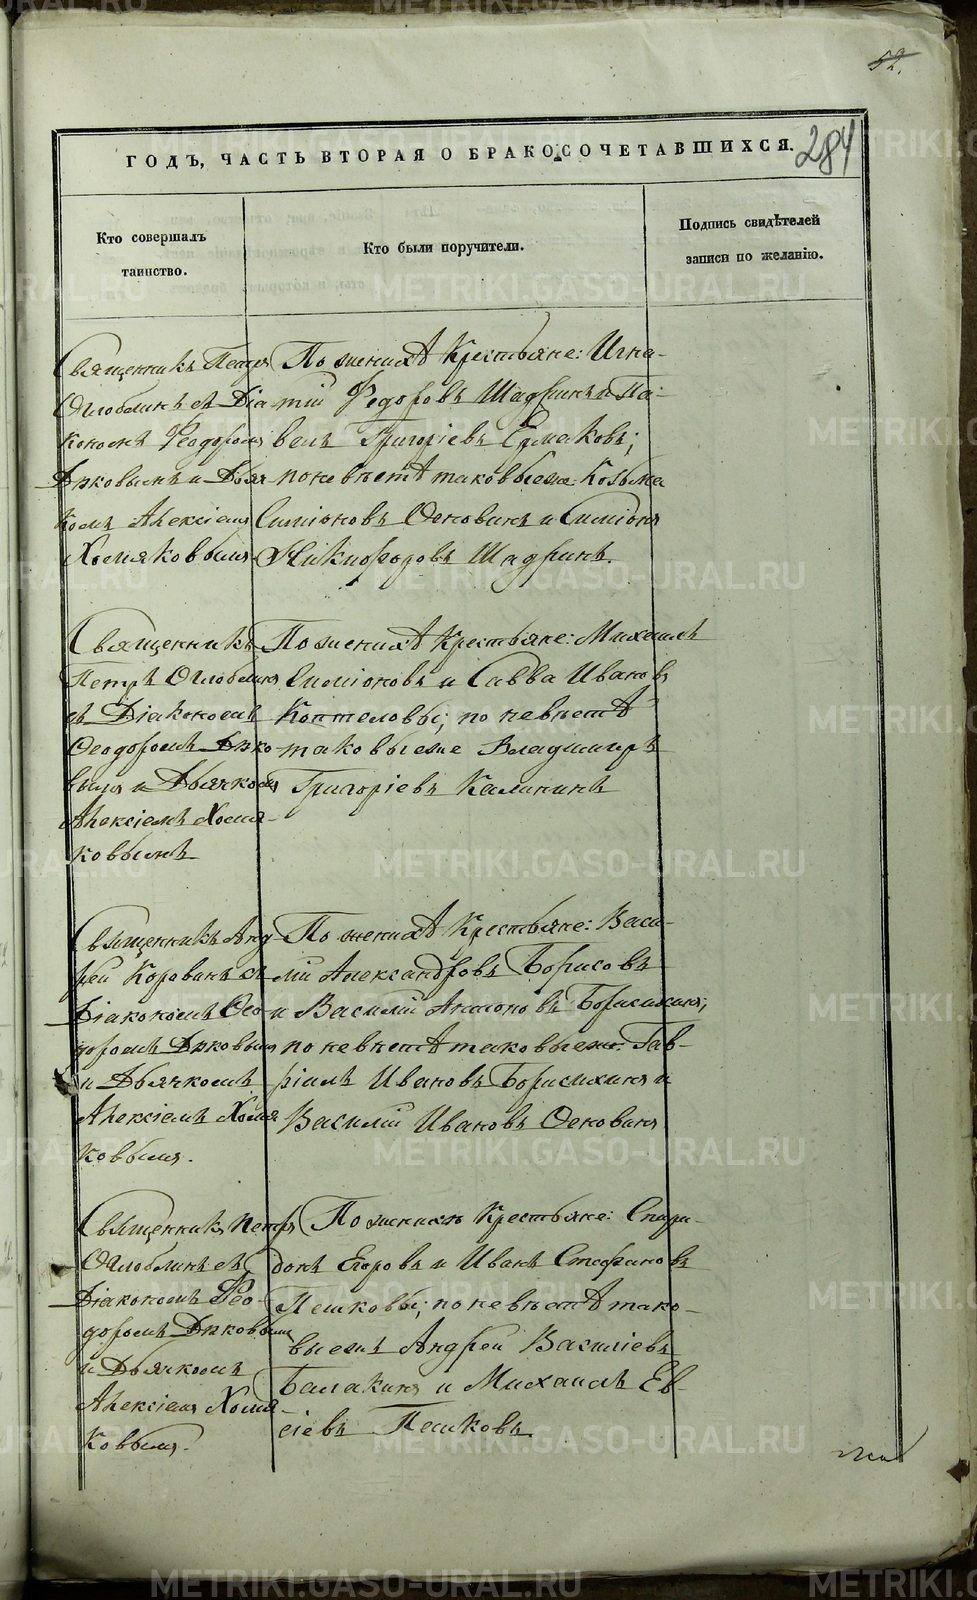 52.
284
ГОДЪ, ЧАСТЬ ВТОРАЯ О БРАКОСОЧЕТАВШИХСЯ.
Кто совершалъ
таинство.
Кто были поручители.
Подпись свидѣтелей
записи по желанію.
Священникъ Петръ
Оглоблинъ съ Діа-
кономъ Ѳеодоромъ
Дьяч-
комъ Алексіемъ
Хомяковымъ.
По женихѣ Крестьяне: Игна-
тій Ѳедоровъ Шадринъ и Па-
велъ Григоріевъ Ермаковъ;
по невѣстѣ таковыеже: Козьма
Симіоновъ и Симіонъ
Никифоровъ Шадринъ.
Священникъ
Петръ Оглоблинъ
съ Діакономъ
Ѳеодоромъ
и Дьячкомъ
Алексіемъ Хомя-
ковымъ
По женихѣ Крестьяне: Михаилъ
Симіоновъ и Савва Ивановъ
Коптеловы; по невѣстѣ
таковыеже Владимиръ
Григоріевъ Калининъ
Священникъ Анд-
рей Коровинъ съ
Діакономъ Ѳео-
доромъ
и Дьячкомъ
Алексіемъ Хомя
ковымъ.
По женихѣ Крестьяне: Васи-
лій Александровъ Борисовъ
и Василій Антоновъ Борисихинъ;
по невѣстѣ таковыеже: Гав-
ріилъ Ивановъ Борисихинъ и
Василій Ивановъ
Священникъ Петръ
Оглоблинъ съ
Діакономъ Ѳео-
доромъ
и Дьячкомъ
Алексіемъ Хомя-
ковымъ.
По женихѣ Крестьяне: Спири-
донъ Егоровъ и Иванъ Стефановъ
Пешковы; по невѣстѣ тако-
выежъ Андрей Василіевъ
Балакинъ и Михаилъ Ев-
сіевъ Пешковъ.
METRIKI.GASO-URAL.RU